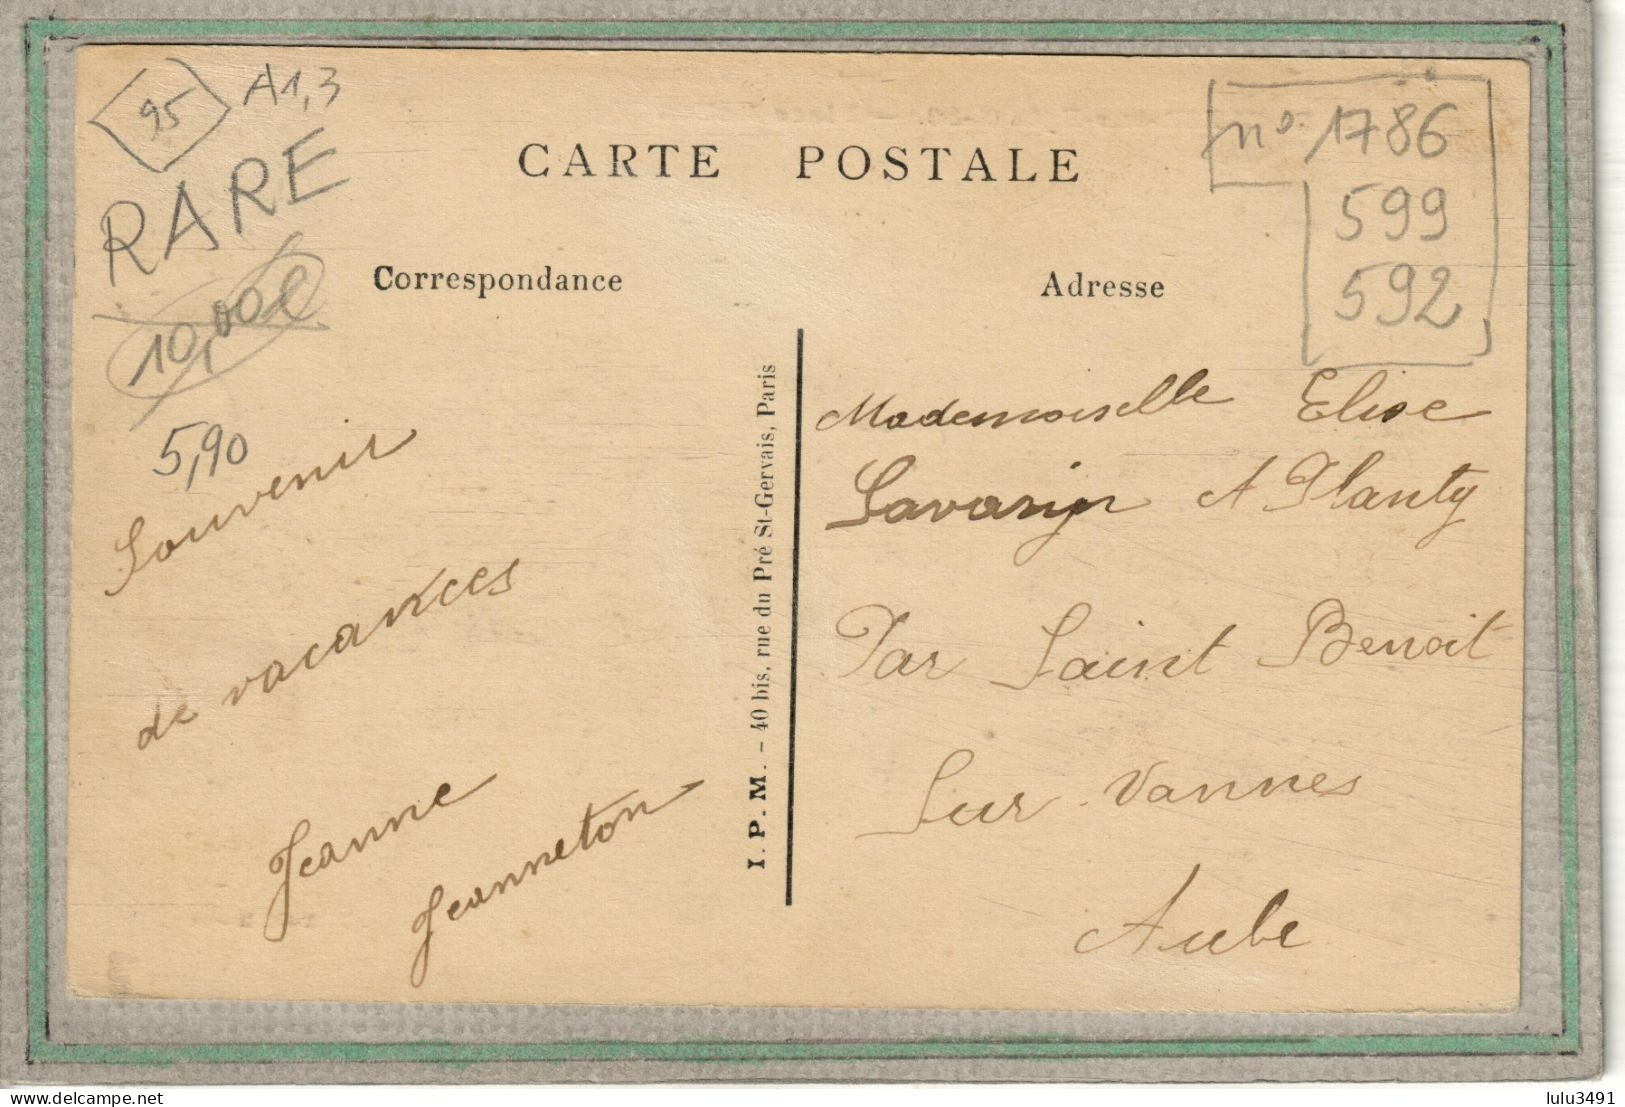 95 A1,3
RARE
10,00€
5,90
n° 1786
599
592
CARTE POSTALE
Correspondance
Adresse
Souvenir
de vacances
Jeanne
Jeanneton
I. P. M. – 40 bis, rue du Pré St-Gervais, Paris
Mademoiselle Elise
A Planty
Par Saint Benoit
Sur Vannes
Aube
delcampe.net
lulu3491